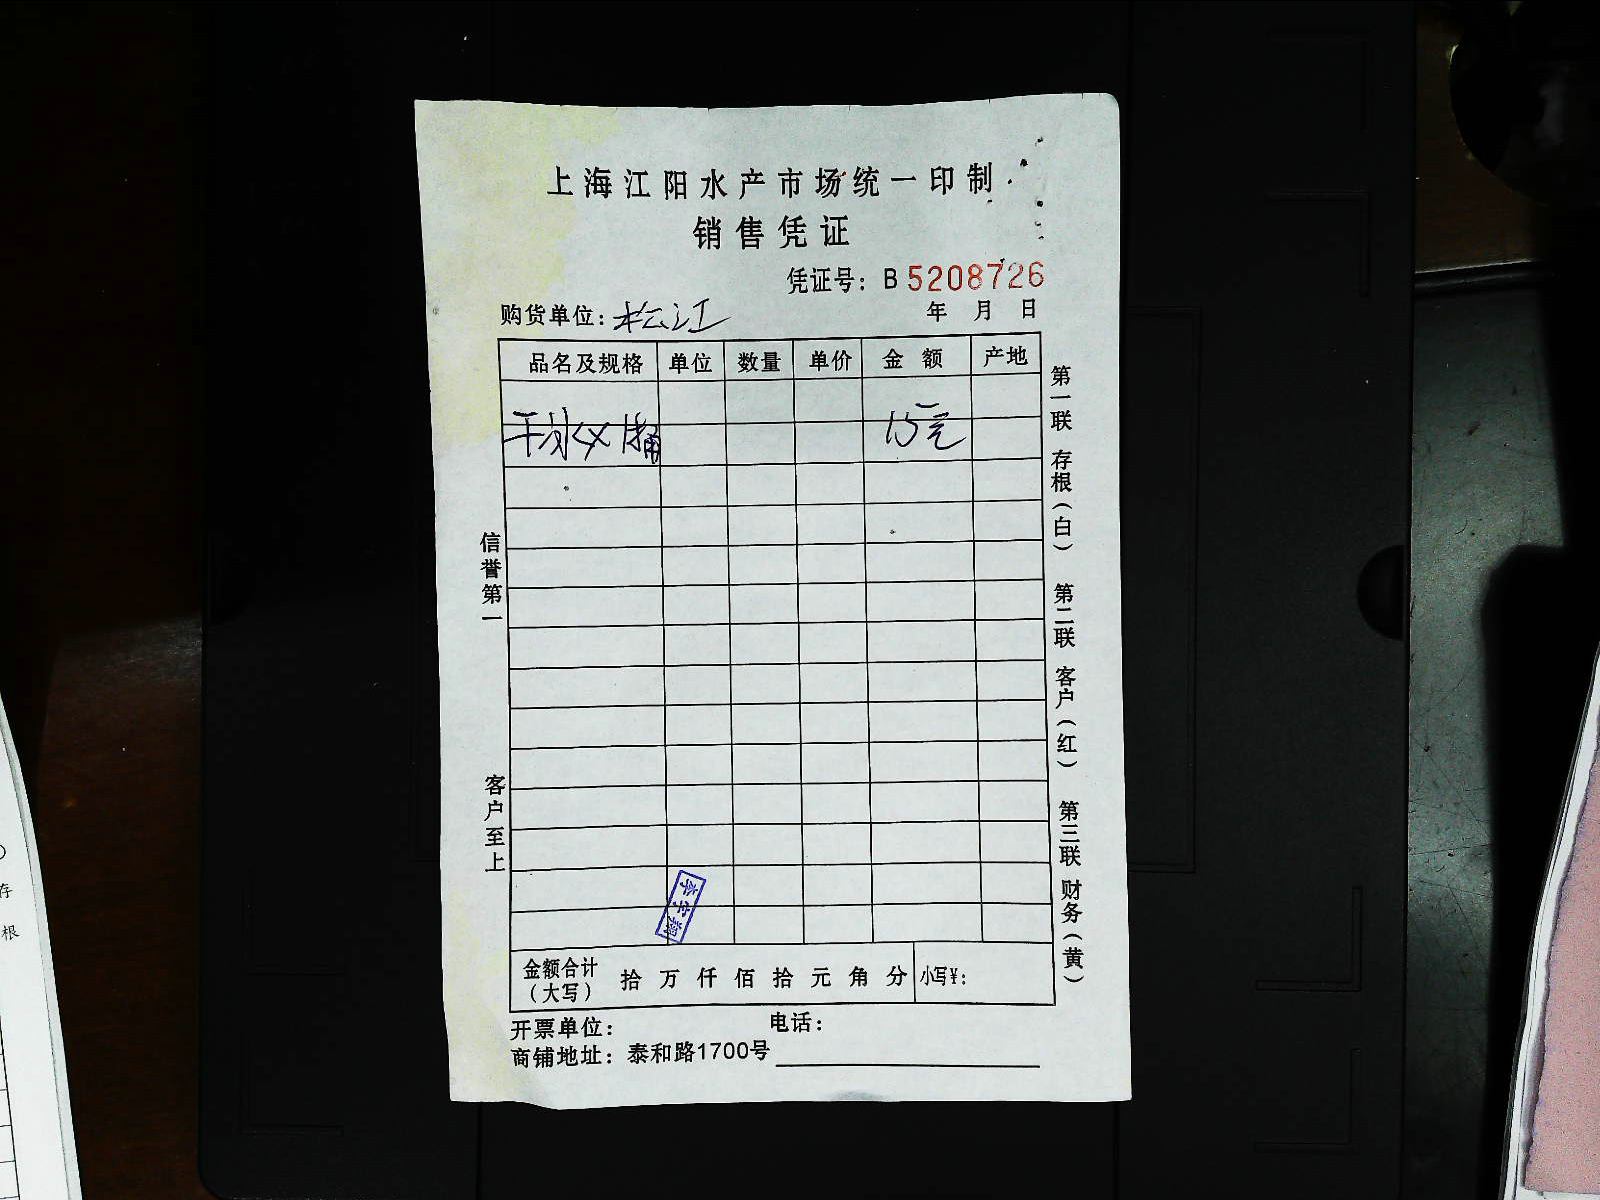 上海江阳水产市场统一印制
销售凭证
凭证号：B 5208726
购货单位：松江 年 月 日
品名及规格 单位 数量 单价 金额 产地
15元
信誉第一
客户至上
第一联 存根（白） 第二联 客户（红） 第三联 财务（黄）
李宇翔
金额合计（大写） 拾 万 仟 佰 拾 元 角 分 小写¥：
开票单位： 电话：
商铺地址：泰和路1700号
存
根